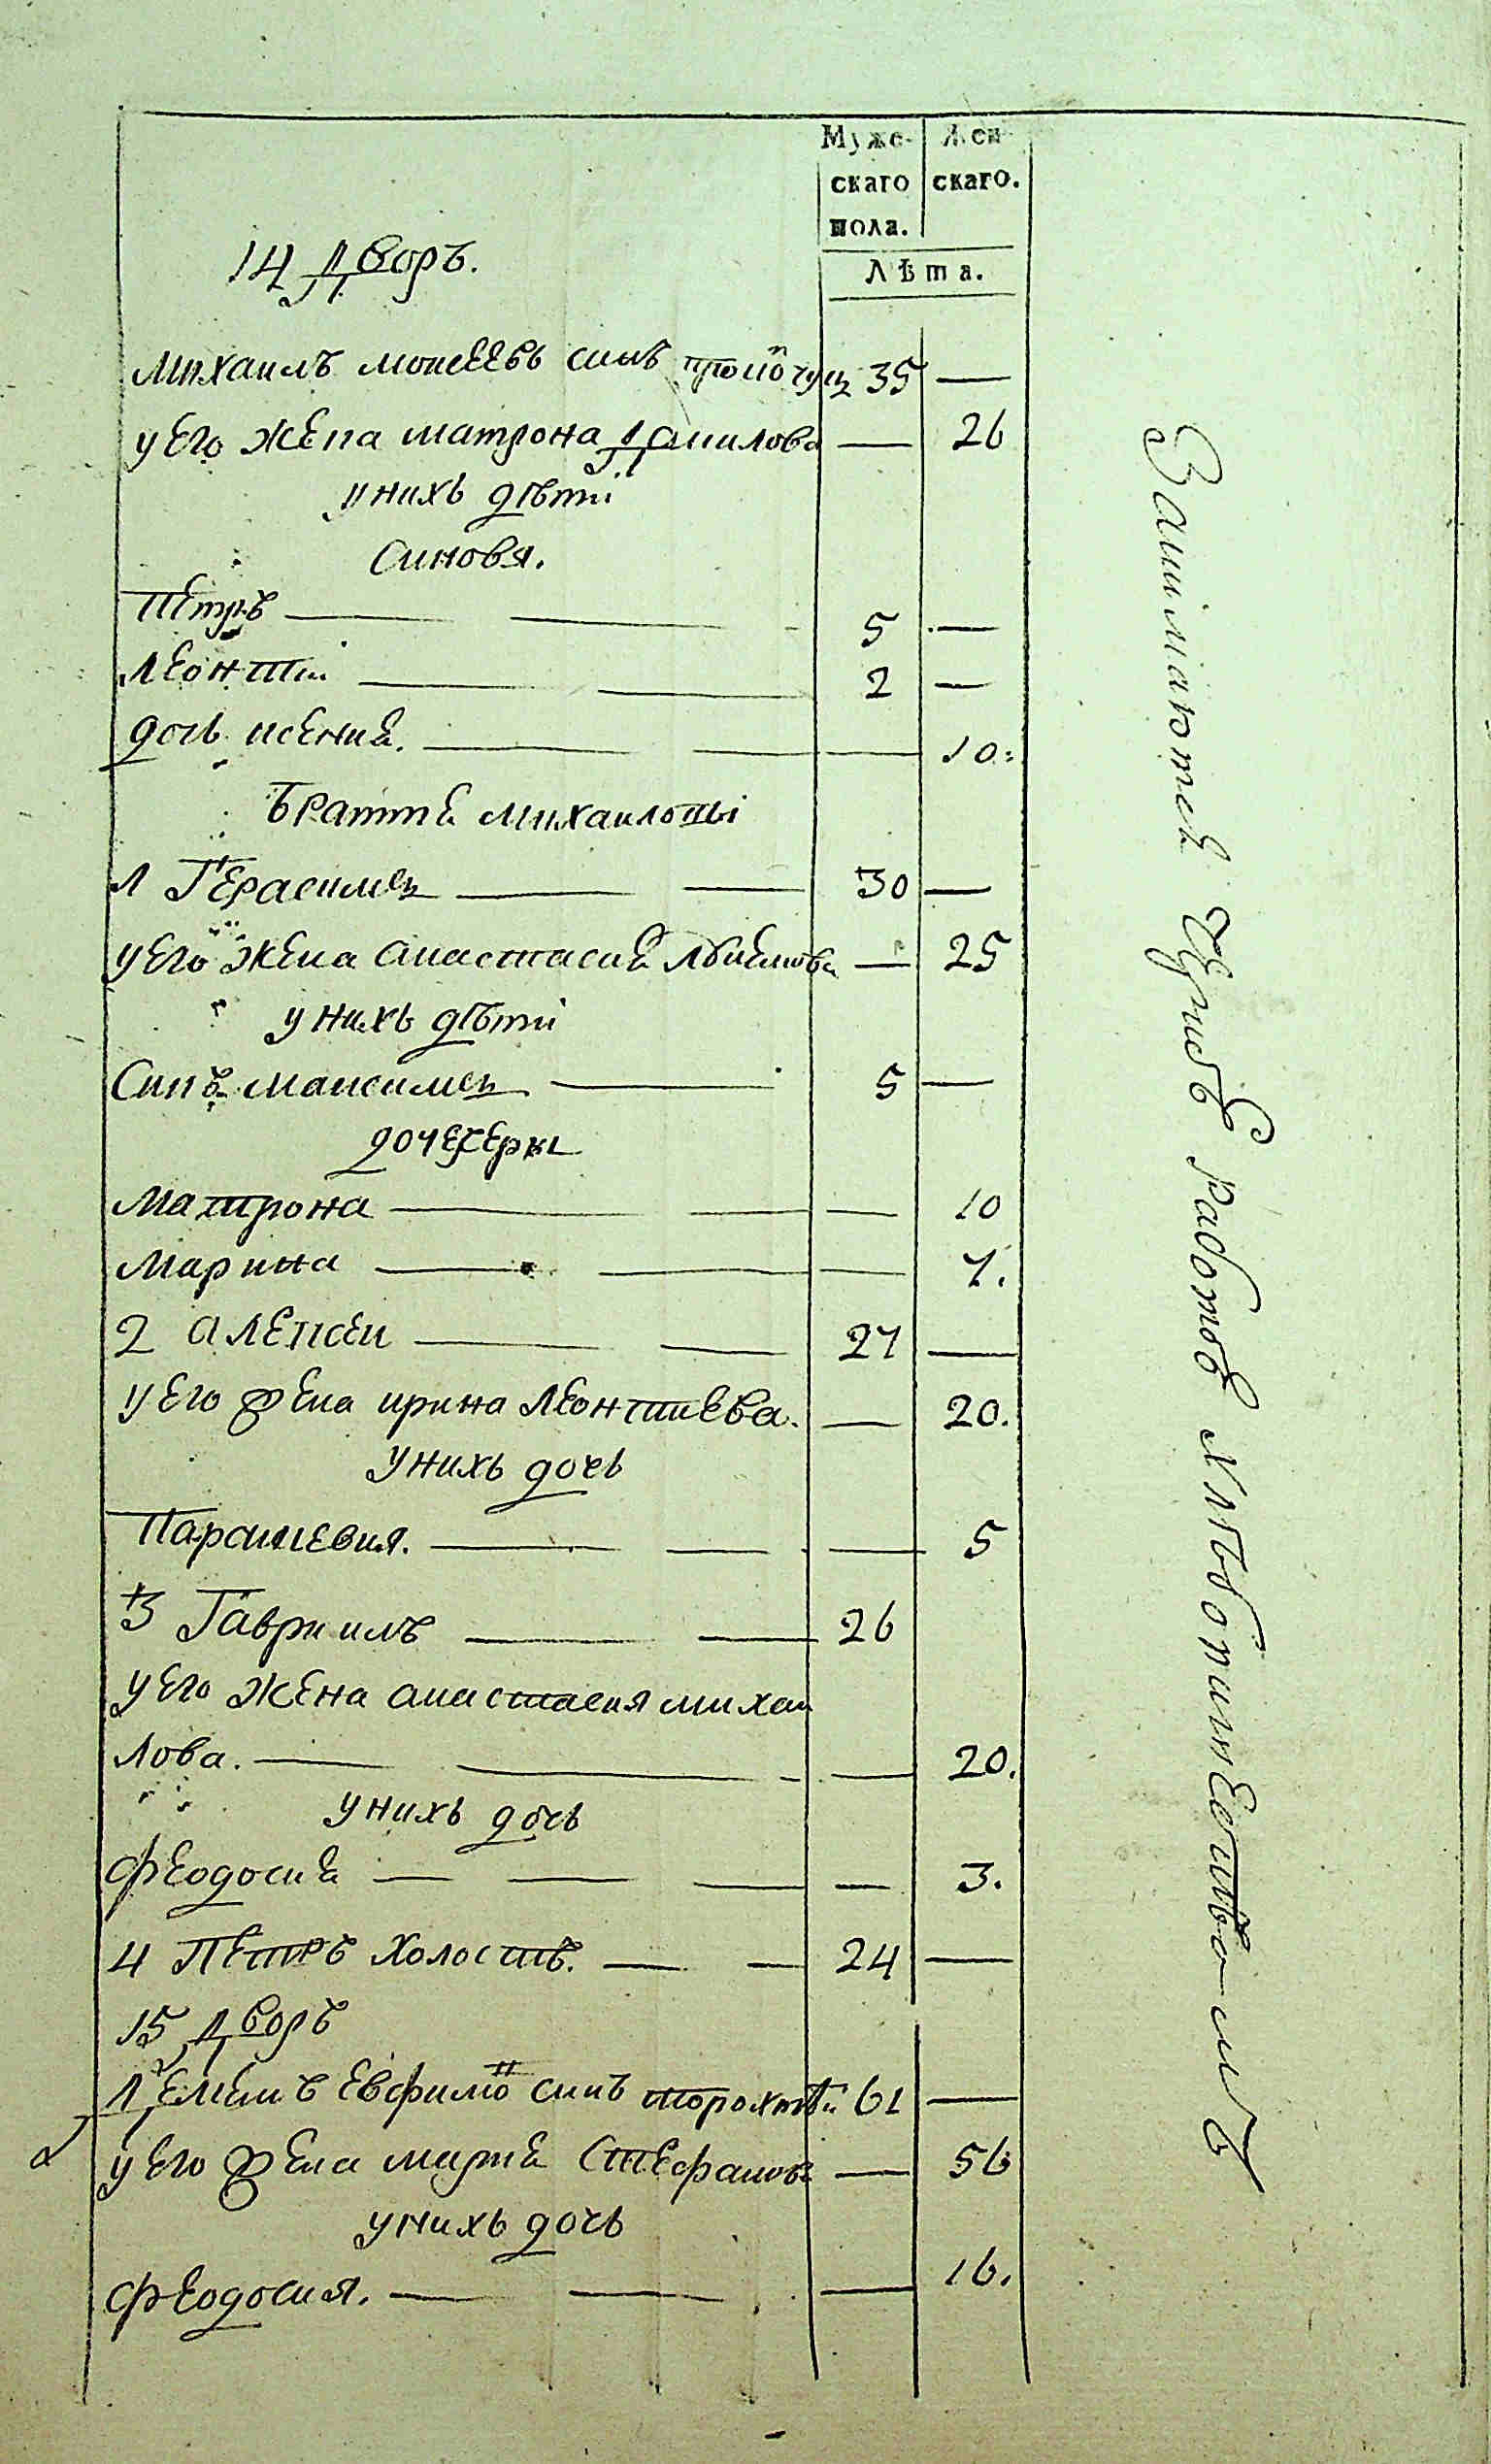 Муже-
скаго
пола.
Жен-
скаго.
Лѣта.
14 Дворъ.
Михаилъ Моисеевъ синъ 35 —
у его жена матрона Данилова — 26
у нихъ дѣти
Синовя.
Петръ — 5 —
Леонтіи — 2 —
дочь ксения. — 10.
Братія Михаиловы
1 Герасимъ — 30 —
у его жена анастасия — 25
у нихъ дѣти
Синъ Максимъ — 5 —
дочерки
Матрона — 10
Марина — 7.
2 алексеи — 27 —
у его жена ирина Леонтиева. — 20.
у нихъ дочь
Параскевия. — 5
3 Гавриилъ — 26
у его жена анастасия михаи
лова. — 20.
у нихъ дочь
феодосия — 3.
4 Петръ холостъ. — 24 —
15 Дворъ
Демянъ Евфимо синъ 61 —
у его жена марта Стефанова — 56
у нихъ дочь
феодосия. — 16.
Занимаются Чрезъ работъ хлѣбопашествомъ